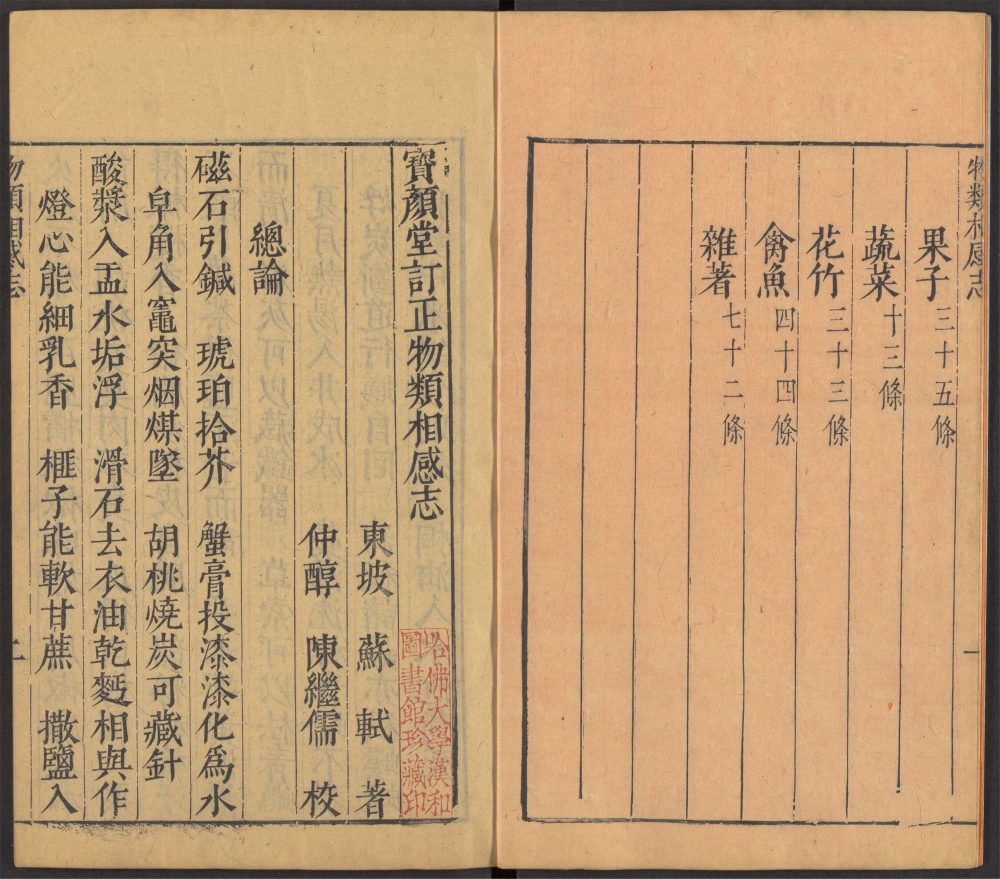 物類相感志
果子三十五條
蔬菜十三條
花竹三十三條
禽魚四十四條
雜著七十二條
一
寶顏堂訂正物類相感志
哈佛大學漢和
圖書館珍藏印
東坡 蘇軾 著
仲醇 陳繼儒 校
總論
磁石引鍼 琥珀拾芥 蟹膏投漆漆化為水
皁角入竈突烟煤墜 胡桃燒炭可藏針
酸漿入盂水垢浮 滑石去衣油乾麪相與作
燈心能細乳香 榧子能軟甘蔗 撒鹽入
物類相感志